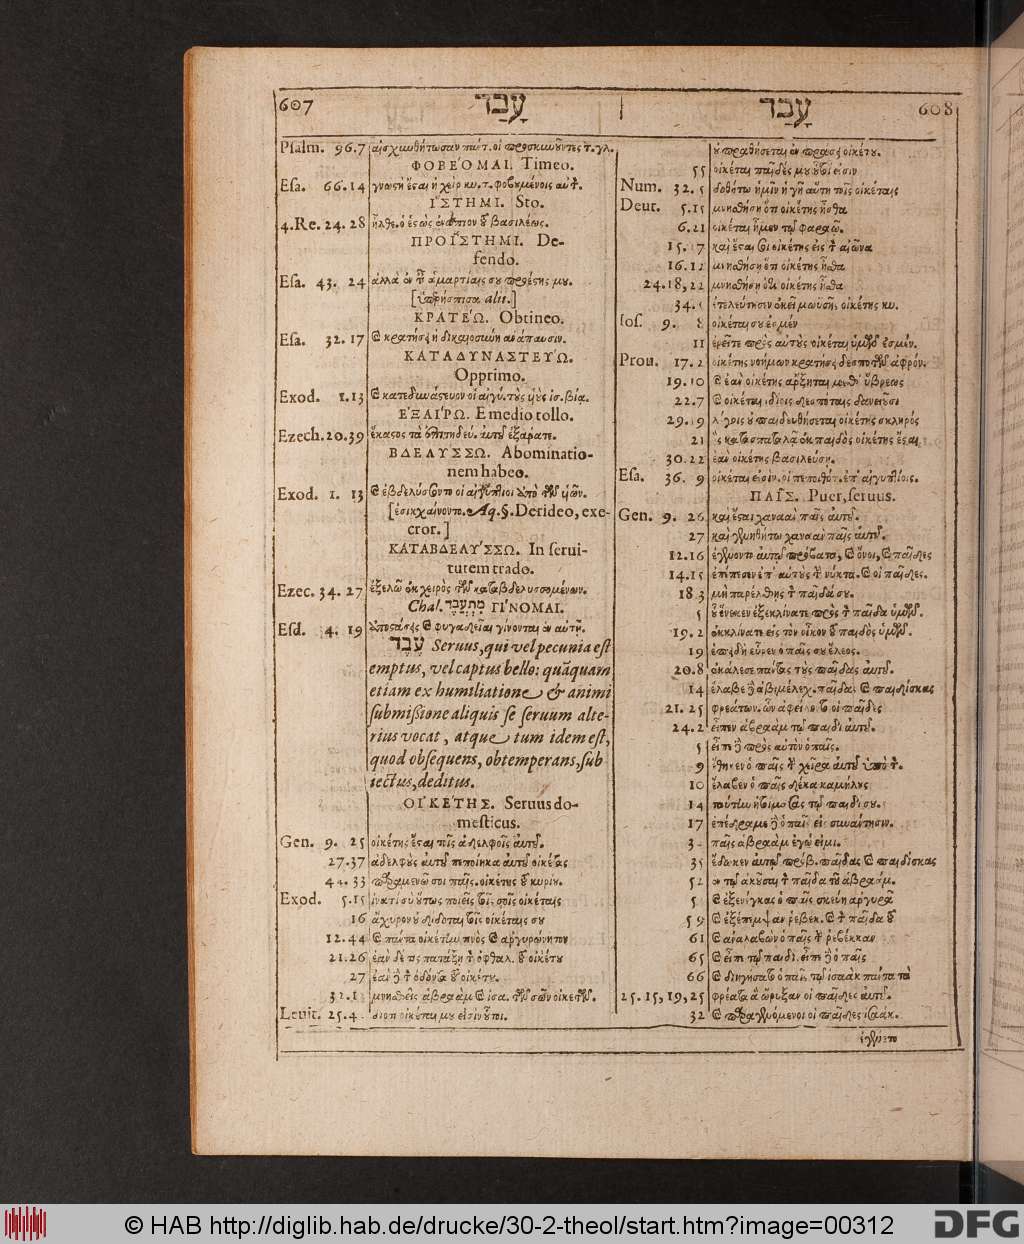 607
עָבַד
עָבַד
608
Psalm. 96.7 αἰσχυνθήτωσαν πάντ. οἱ προσκυνοῦντες τ. γλ.
ΦΟΒΕΌΜΑΙ. Timeo.
Esa. 66.14 γνωσθήσεται ἡ χεὶρ κυ. τ. φοβουμένοις αὐτ.
ἽΣΤΗΜΙ. Sto.
4.Re. 24. 28
ΠΡΟΪ́ΣΤΗΜΙ. De-
fendo.
Esa. 43. 24 ἀλλὰ ἐν τ ἁμαρτίαις σου προέστης μου.
[ὑπερήσπισα alit.]
ΚΡΑΤΈΩ. Obtineo.
Esa. 32. 17 κρατήσει ἡ δικαιοσύνη ἀνάπαυσιν.
ΚΑΤΑΔΥΝΑΣΤΕΎΩ.
Opprimo.
Exod. 1.13 κατεδυνάστευον οἱ αἰγύ. τοὺς υἱοὺς ἰσ. βίᾳ.
ἘΞΑΊΡΩ. E medio tollo.
Ezech. 20.39 ἕκαστος τὰ ἐπιτηδεύ. αὐτοῦ ἐξάρατε.
ΒΔΕΛΥΣΣΩ. Abominatio-
nem habeo.
Exod. 1. 13 ἐβδελύσσοντο οἱ αἰγύπτιοι ἀπὸ τῶν υἱῶν.
[ἐσικχαίνοντο. Aq. §. Derideo, exe-
cror.]
ΚΑΤΑΒΔΕΛΥΣΣΩ. In serui-
tutem trado.
Ezec. 34. 27 ἐξελῶ ἐκ χειρὸς τῶν καταβδελυσσομένων.
Chal. מִתְעֲבֵד ΓΙΝΟΜΑΙ.
Esd. 4. 19 ἀποστάσεις φυγαδεῖαι γίνονται ἐν αὐτῇ.
עֶבֶד Seruus, qui vel pecunia est
emptus, vel captus bello: quāquam
etiam ex humiliatione & animi
submißione aliquis se seruum alte-
rius vocat, atque tum idem est,
quod obsequens, obtemperans, sub
iectus, deditus.
ΟἸΚΈΤΗΣ. Seruus do-
mesticus.
Gen. 9. 25 οἰκέτης ἔσται τοῖς ἀδελφοῖς αὐτοῦ.
27.37 ἀδελφοὺς αὐτοῦ πεποίηκα αὐτοῦ οἰκέτας
44. 33 παραμενῶ σοι παῖς. οἰκέτης τοῦ κυρίου.
Exod. 5.15 ἱνατί σὺ οὕτως ποιεῖς τοῖς σοῖς οἰκέταις
16 ἄχυρον οὐ δίδοται τοῖς οἰκέταις σου
12.44 πάντα οἰκέτην τινὸς ἀργυρώνητον
21.26 ἐὰν δέ τις πατάξῃ τ ὀφθαλ. τοῦ οἰκέτου
27 ἐὰν δὲ τ ὀδόντα τοῦ οἰκέτου.
32.13 μνησθεὶς ἀβραὰμ ἰσα. τῶν σῶν οἰκετῶν.
Leuit. 25.4 διότι οἰκέται μου εἰσὶν οὗτοι.
οὐ πραθήσεται ἐν πράσει οἰκέτου.
55 οἰκέται παῖδές μου οὗτοί εἰσιν
Num. 32. 5 δοθήτω ἡμῖν ἡ γῆ αὕτη τοῖς οἰκέταις
Deut. 5.15 μνησθήσῃ ὅτι οἰκέτης ἦσθα
6.21 οἰκέται ἦμεν τῷ φαραῷ.
15. 17 καὶ ἔσται σοι οἰκέτης εἰς τ αἰῶνα
16.12 μνησθήσῃ ὅτι οἰκέτης ἦσθα
24.18,22 μνησθήσῃ ὅτι οἰκέτης ἦσθα
34. 5 ἐτελεύτησεν ἐκεῖ μωϋσῆς οἰκέτης κυ.
Ios. 9. 8 οἰκέται σου ἐσμέν
11 ἐρεῖτε πρὸς αὐτοὺς οἰκέται ὑμῶν ἐσμέν.
Prou. 17. 2 οἰκέτης νοήμων κρατήσει δεσποτῶν ἀφρόν.
19.10 ἐὰν οἰκέτης ἄρξηται μεθ᾽ ὕβρεως
22.7 οἰκέται ἰδίοις δεσπόταις δανειοῦσι
29.19 λόγοις οὐ παιδευθήσεται οἰκέτης σκληρός
21 ὃς κατασπαταλᾷ ἐκ παιδὸς οἰκέτης ἔσται
30.22 ἐὰν οἰκέτης βασιλεύσῃ.
Esa. 36. 9 οἰκέται εἰσίν. οἱ πεποιθότ. ἐπ᾽ αἰγυπτίοις.
ΠΑΪ͂Σ. Puer, seruus.
Gen. 9. 26 καὶ ἔσται χαναὰν παῖς αὐτοῦ.
27 καὶ γενηθήτω χαναὰν παῖς αὐτοῦ.
12.16 ἐγένοντο αὐτῷ πρόβατα, ὄνοι, παῖδες
14.15 ἐπέπεσεν ἐπ᾽ αὐτοὺς τ νύκτα. οἱ παῖδες.
18.3 μὴ παρέλθῃς τ παῖδά σου.
5 οὗ ἕνεκεν ἐξεκλίνατε πρὸς τ παῖδα ὑμῶν.
19. 2 ἐκκλίνατε εἰς τὸν οἶκον τοῦ παιδὸς ὑμῶν.
19 ἐπειδὴ εὗρεν ὁ παῖς σου ἔλεος.
20.8 ἐκάλεσε πάντας τοὺς παῖδας αὐτοῦ.
14 ἔλαβε δὲ ἀβιμέλεχ. παῖδας παιδίσκας
21. 25 φρεάτων. ὧν ἀφείλοντο οἱ παῖδες
24. 2 εἶπεν ἀβραὰμ τῷ παιδὶ αὐτοῦ.
5 εἶπε δὲ πρὸς αὐτὸν ὁ παῖς.
9 ἔθηκεν ὁ παῖς τ χεῖρα αὐτοῦ ὑπὸ τ.
10 ἔλαβεν ὁ παῖς δέκα καμήλους
14 ταύτην ἡτοίμασας τῷ παιδί σου.
17 ἐπέδραμε δὲ ὁ παῖς εἰς συνάντησιν.
34 παῖς ἀβραὰμ ἐγώ εἰμι.
35 ἔδωκεν αὐτῷ πρόβ. παῖδας παιδίσκας
52 ἐν τῷ ἀκοῦσαι τ παῖδα τοῦ ἀβραάμ.
5 ἐξενέγκας ὁ παῖς σκεύη ἀργυρᾶ
59 ἐξέπεμψαν ῥεβέκ. τ παῖδα τοῦ
61 ἀναλαβὼν ὁ παῖς τ ῥεβέκκαν
65 εἶπε τῷ παιδί. εἶπε δὲ ὁ παῖς
66 διηγήσατο ὁ παῖς τῷ ἰσαὰκ πάντα τὰ
25. 15, 19, 25 φρέατα ἃ ὤρυξαν οἱ παῖδες αὐτοῦ.
32 παραγενόμενοι οἱ παῖδες ἰσαάκ.
ἐγένετο
© HAB http://diglib.hab.de/drucke/30-2-theol/start.htm?image=00312
DFG